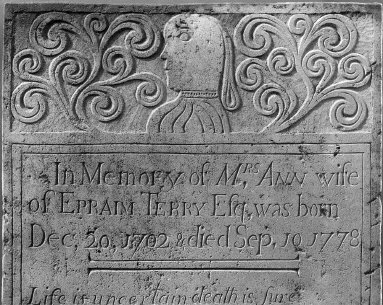 In Memory of Mrs Ann wife
of Epraim Terry Esq, was born
Dec, 20, 1702 & died Sep, 10 1778
Life is uncertain death is sure